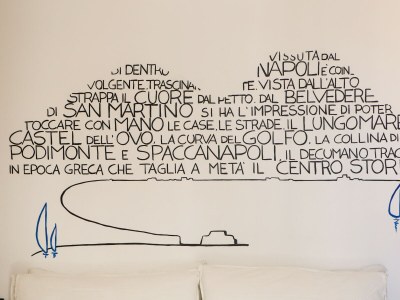 VISSUTA DAL
DI DENTRO NAPOLI È COIN
VOLGENTE, TRASCINA, TE. VISTA DALL'ALTO
STRAPPA IL CUORE DAL PETTO. DAL BELVEDERE
DI SAN MARTINO SI HA L'IMPRESSIONE DI POTER
TOCCARE CON MANO LE CASE, LE STRADE, IL LUNGOMARE
CASTEL DELL'OVO, LA CURVA DEL GOLFO, LA COLLINA DI
PODIMONTE E SPACCANAPOLI, IL DECUMANO TRAC
IN EPOCA GRECA CHE TAGLIA A METÀ IL CENTRO STOR